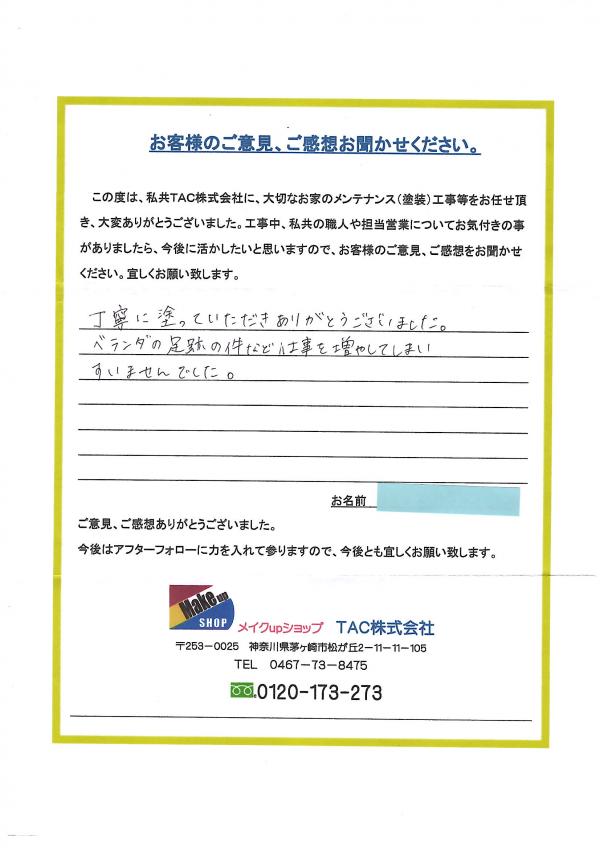 お客様のご意見、ご感想お聞かせください。
この度は、私共TAC株式会社に、大切なお家のメンテナンス(塗装)工事等をお任せ頂
き、大変ありがとうございました。工事中、私共の職人や担当営業についてお気付きの事
がありましたら、今後に活かしたいと思いますので、お客様のご意見、ご感想をお聞かせ
ください。宜しくお願い致します。
丁寧に塗っていただきありがとうございました。
ベランダの足跡の件など仕事を増やしてしまい
すいませんでした。
お名前
ご意見、ご感想ありがとうございました。
今後はアフターフォローに力を入れて参りますので、今後とも宜しくお願い致します。
Make up
SHOP
メイクupショップ TAC株式会社
〒253-0025 神奈川県茅ヶ崎市松が丘2-11-11-105
TEL 0467-73-8475
0120-173-273